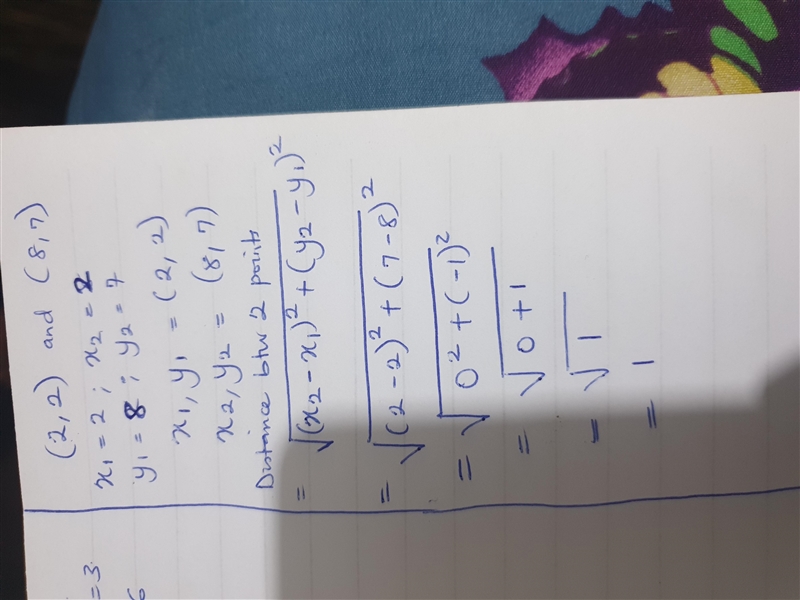 (2,2) and (8,7)
x₁ = 2 ; x₂ = 2
y₁ = 8 ; y₂ = 7
x₁, y₁ = (2, 2)
x₂, y₂ = (8, 7)
Distance btw 2 points
= √(x₂ - x₁)² + (y₂ - y₁)²
= √(2 - 2)² + (7 - 8)²
= √0² + (-1)²
= √0 + 1
= √1
= 1
= 3
6